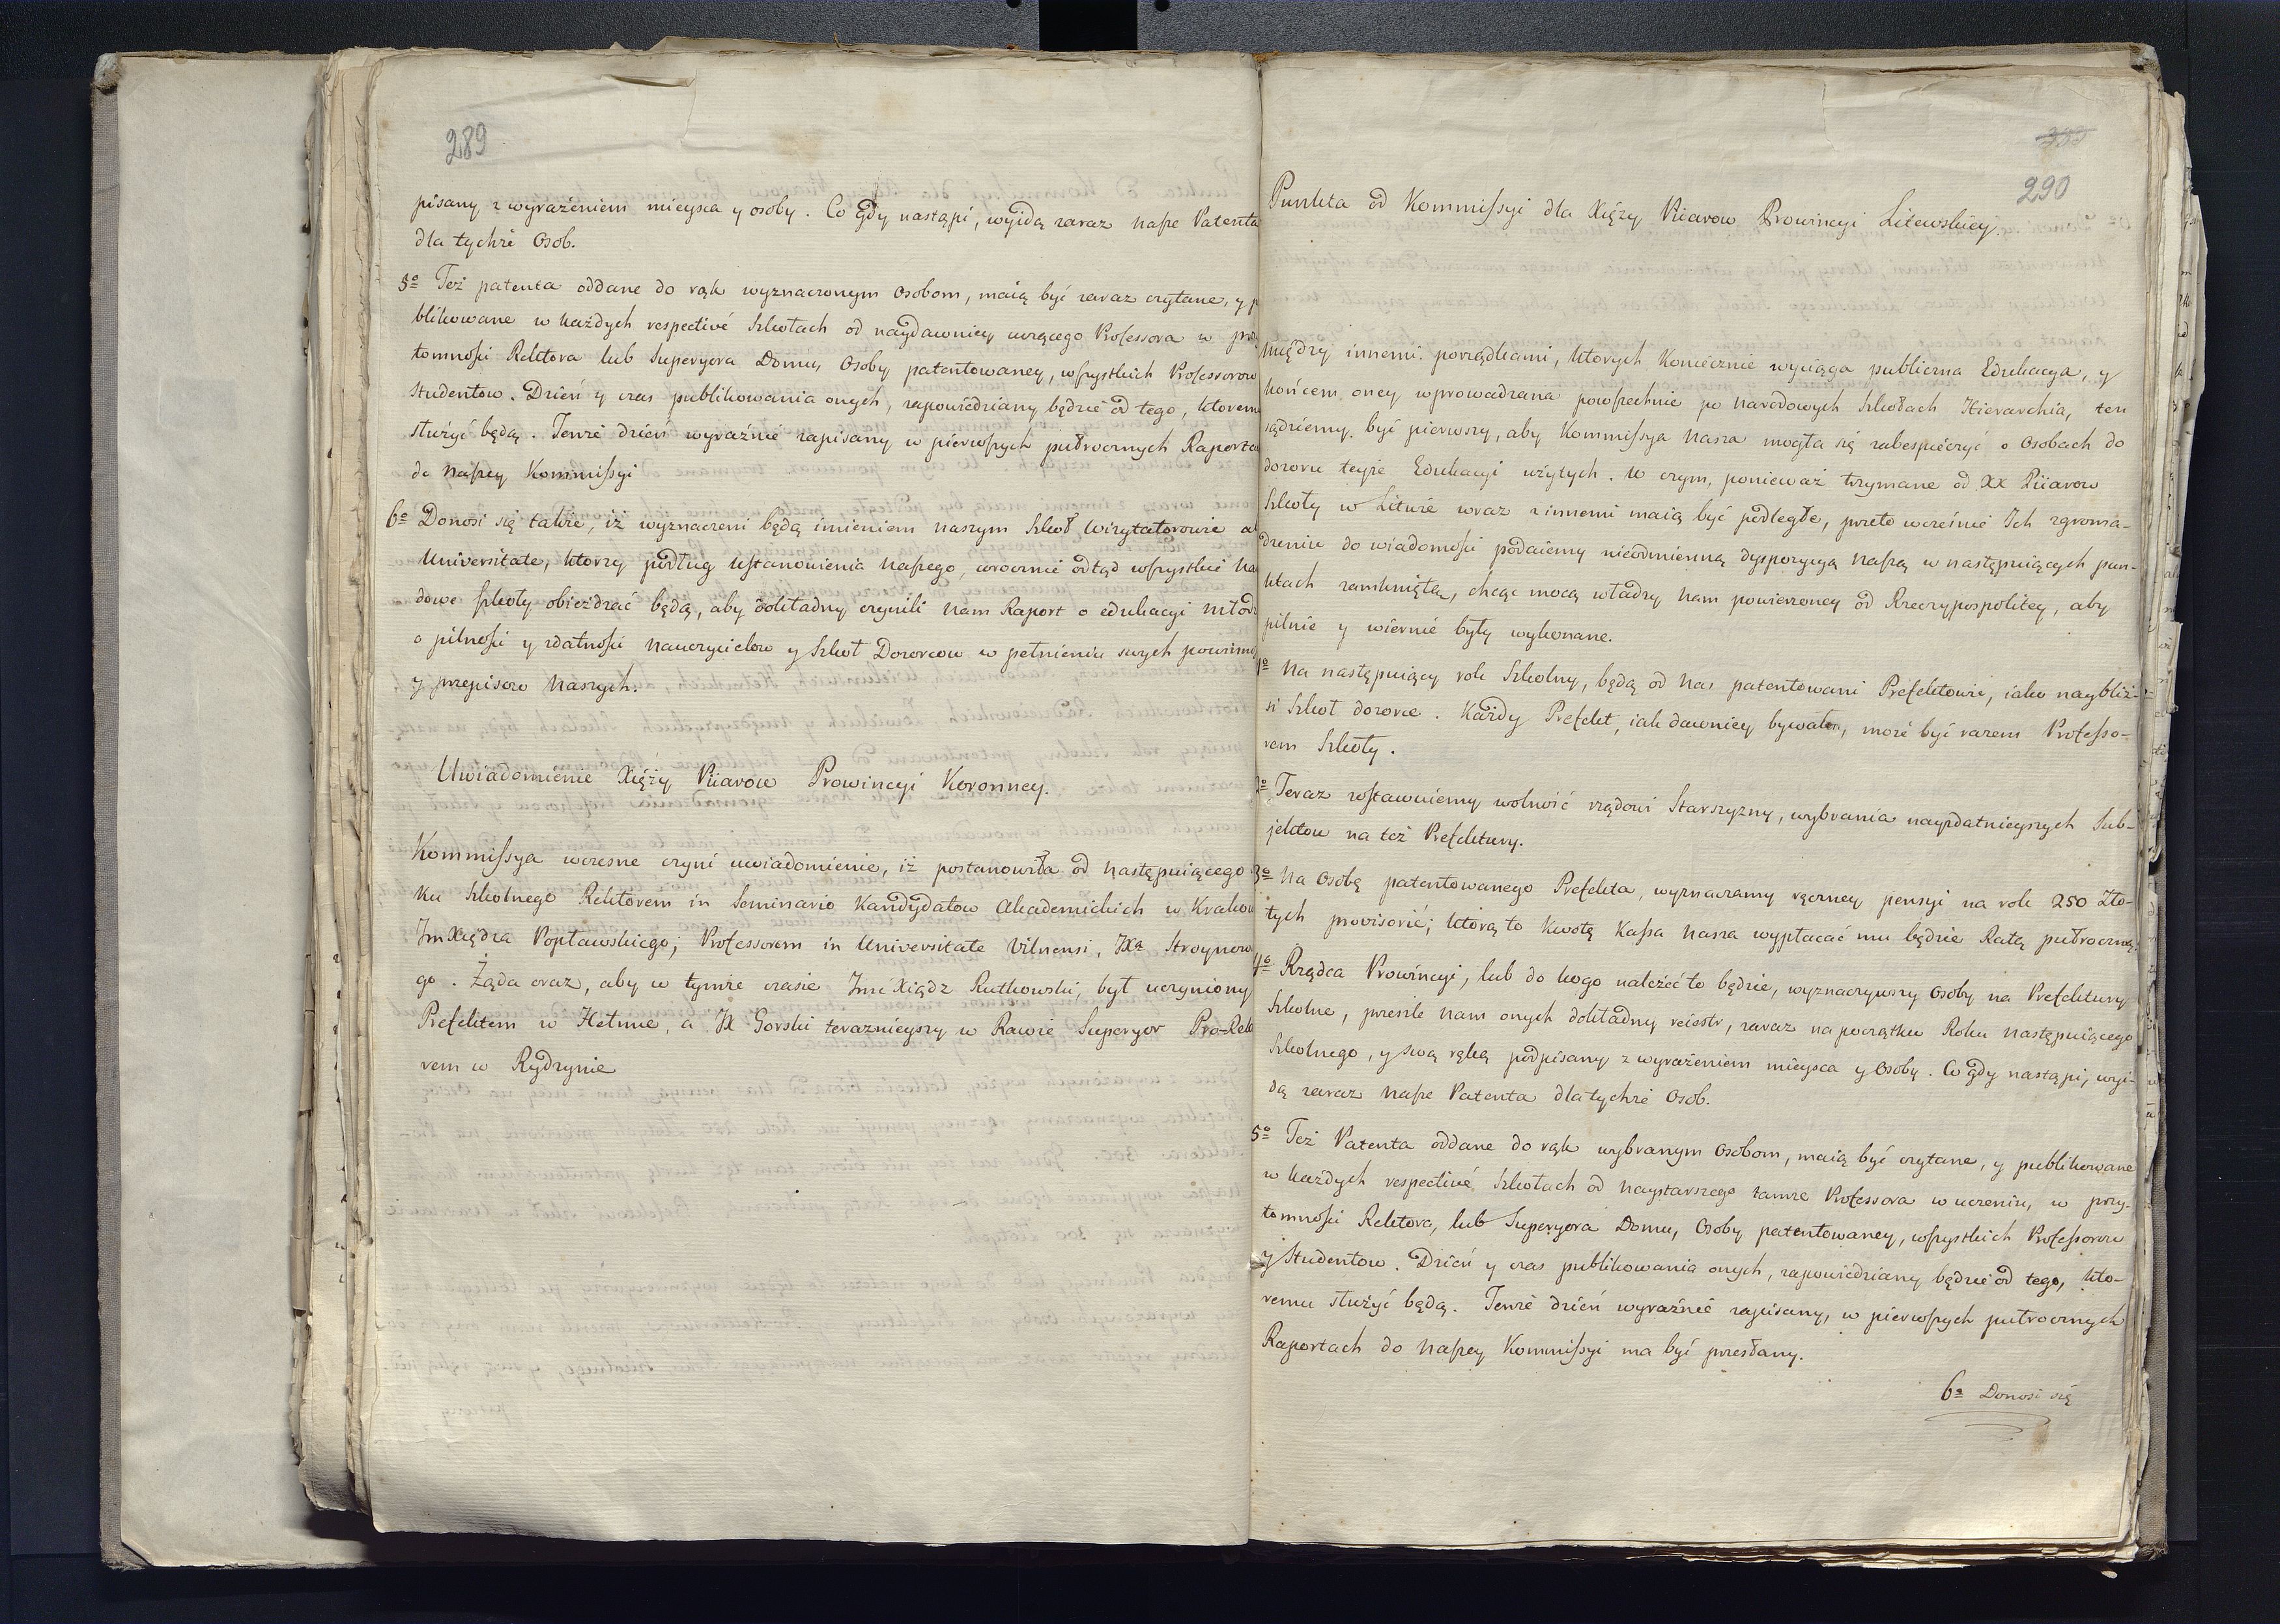 289
pisany z wyrażeniem mieysca y osoby. Co gdy nastąpi, wyjdą zaraz nasze Patenta
dla tychże Osob.
5º Też patenta oddane do rąk wyznaczonym Osobom, maią być zaraz czytane, y p
blikowane w każdych respectivé Szkołach od naydawniey uczącego Professora w prz
tomności Rektora lub Superyora Domu, Osoby patentowaney, wszystkich Professorow
Studentow. Dzień y czas publikowania onych, zapowiedziany będzie od tego, ktoremu
służyć będą. Tenże dzień wyraźnie zapisany w pierwszych pułrocznych Raporta
do Naszey Kommissyi
6º Donosi się także, iż wyznaczeni będą imieniem naszym Szkoł Wizytatorowie ab
Universitate, ktorzy podług Ustanowienia Naszego, corocznie odtąd wszystkie Na
dowe szkoły obieżdzać będą, aby dokładny czynili nam Raport o edukacyi młodz
o pilności y zdatności Nauczycielow y Szkoł Dozorcow w pełnieniu swych powinno
y przepisow Naszych.
Uwiadomienie Xięży Piiarow Prowincyi Koronney.
Kommissya wczesne czyni uwiadomienie, iż postanowiła od następuiącego
ku Szkolnego Rektorem in Seminario Kandydatow Akademickich w Krakow
ImXiędza Popławskiego; Professorem in Universitate Vilnensi, JXa Stroynow
go. Żąda oraz, aby w tymże czasie Imć Xiądz Rutkowski, był uczyniony
Prefektem w Hełmie, a JX Gorski teraznieyszy w Rawie Superyor Pro-Rek
rem w Rydzynie
290
Punkta od Kommissyi dla Xięży Piiarow Prowincyi Litewskiey.
Między innemi porządkami, ktorych koniecznie wyciąga publiczna Edukacya, y
końcem oney wprowadzana powszechnie po narodowych Szkołach Hierarchia, ten
sądziemy być pierwszy, aby Kommissya Nasza mogła się zabespieczyć o Osobach do
dozoru teyże Edukacyi użytych. W czym, ponieważ trzymane od XX Piiarow
Szkoły w Litwie wraz z innemi maią być podległe, przeto wcześnie Ich zgroma-
dzeniu do wiadomości podaiemy nieodmienną dyspozycyą Naszą w następuiących pun-
ktach zamkniętą, chcąc mocą władzy Nam powierzoney od Rzeczypospolitey, aby
pilnie y wiernie były wykonane.
1º Na następuiący rok Szkolny, będą od Nas patentowani Prefektowie, iako naybliż-
si Szkoł dozorce. Każdy Prefekt, iak dawniey bywało, może być razem Professo-
rem Szkoły.
2º Teraz zostawuiemy wolność rządowi Starszyzny, wybrania nayzdatnieyszych Sub-
jektow na też Prefektury.
3º Na Osobę patentowanego Prefekta, wyznaczamy roczney pensyi na rok 250 Zło-
tych provisorié; ktorą to kwotę Kassa Nasza wypłacać mu będzie Ratą pułroczną.
4º Rządca Prowincyi, lub do kogo należeć to będzie, wyznaczywszy Osoby na Prefektury
Szkolne, przesle Nam onych dokładny reiestr, zaraz na początku Roku następuiącego
Szkolnego, y swą ręką podpisany z wyrażeniem mieysca y Osoby. Co gdy nastąpi, wyi-
dą zaraz Nasze Patenta dla tychże Osob.
5º Też Patenta oddane do rąk wybranym Osobom, maią być czytane, y publikowane
w każdych respectivé Szkołach od Naystarszego tamże Professora w uczeniu, w przy-
tomności Rektora, lub Superyora Domu, Osoby patentowaney, wszystkich Professorow
y Studentow. Dzień y czas publikowania onych, zapowiedziany będzie od tego, kto-
remu służyć będą. Tenże dzień wyraźnie zapisany, w pierwszych pułrocznych
Raportach do Naszey Kommissyi ma być przesłany.
6º Donosi się